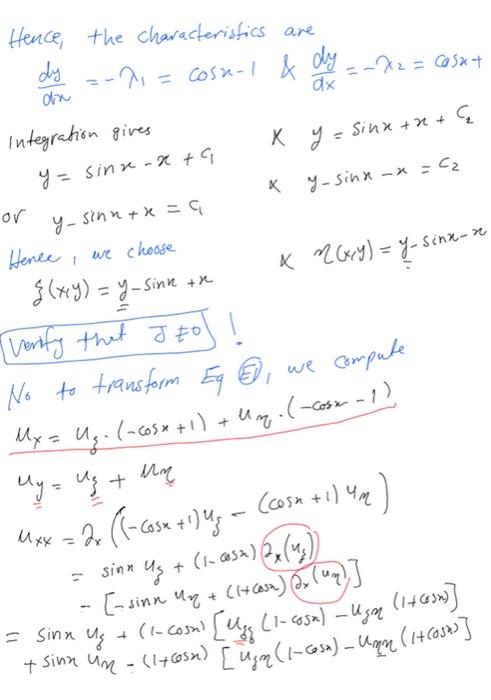 Hence, the characteristics are
dy/dx = -λ₁ = cosx-1 & dy/dx = -λ₂ = cosx+
Integration gives
y = sinx - x + c₁ & y = sinx + x + c₂
or y - sinx + x = c₁ & y - sinx - x = c₂
Hence, we choose
ξ(x,y) = y - sinx + x & η(x,y) = y - sinx - x
Verify that J≠0 !
No to transform Eq E1, we compute
u_x = u_ξ · (-cosx+1) + u_η · (-cosx-1)
u_y = u_ξ + u_η
u_xx = ∂_x ((-cosx+1)u_ξ - (cosx+1)u_η)
= sinx u_ξ + (1-cosx) ∂_x(u_ξ)
- [-sinx u_η + (1+cosx) ∂_x(u_η)]
= sinx u_ξ + (1-cosx) [u_ξξ (1-cosx) - u_ξη (1+cosx)]
+ sinx u_η - (1+cosx) [u_ξη (1-cosx) - u_ηη (1+cosx)]